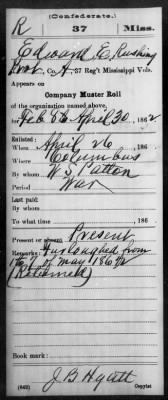 (Confederate.)
R 37 Miss.
Edward E. Rushing
Co. A, 37 Reg't Mississippi Vols.
Appears on
Company Muster Roll
of the organization named above,
for Feb 8 to April 30, 1862.
Enlisted:
When April 26, 186
Where Columbus
By whom W. S. Patton
Period War
Last paid:
By whom
To what time , 186
Present or absent Present
Remarks: Furloughed from
of May 1862
(Returned)
Book mark:
J. B. Hyatt
(642) Copyist